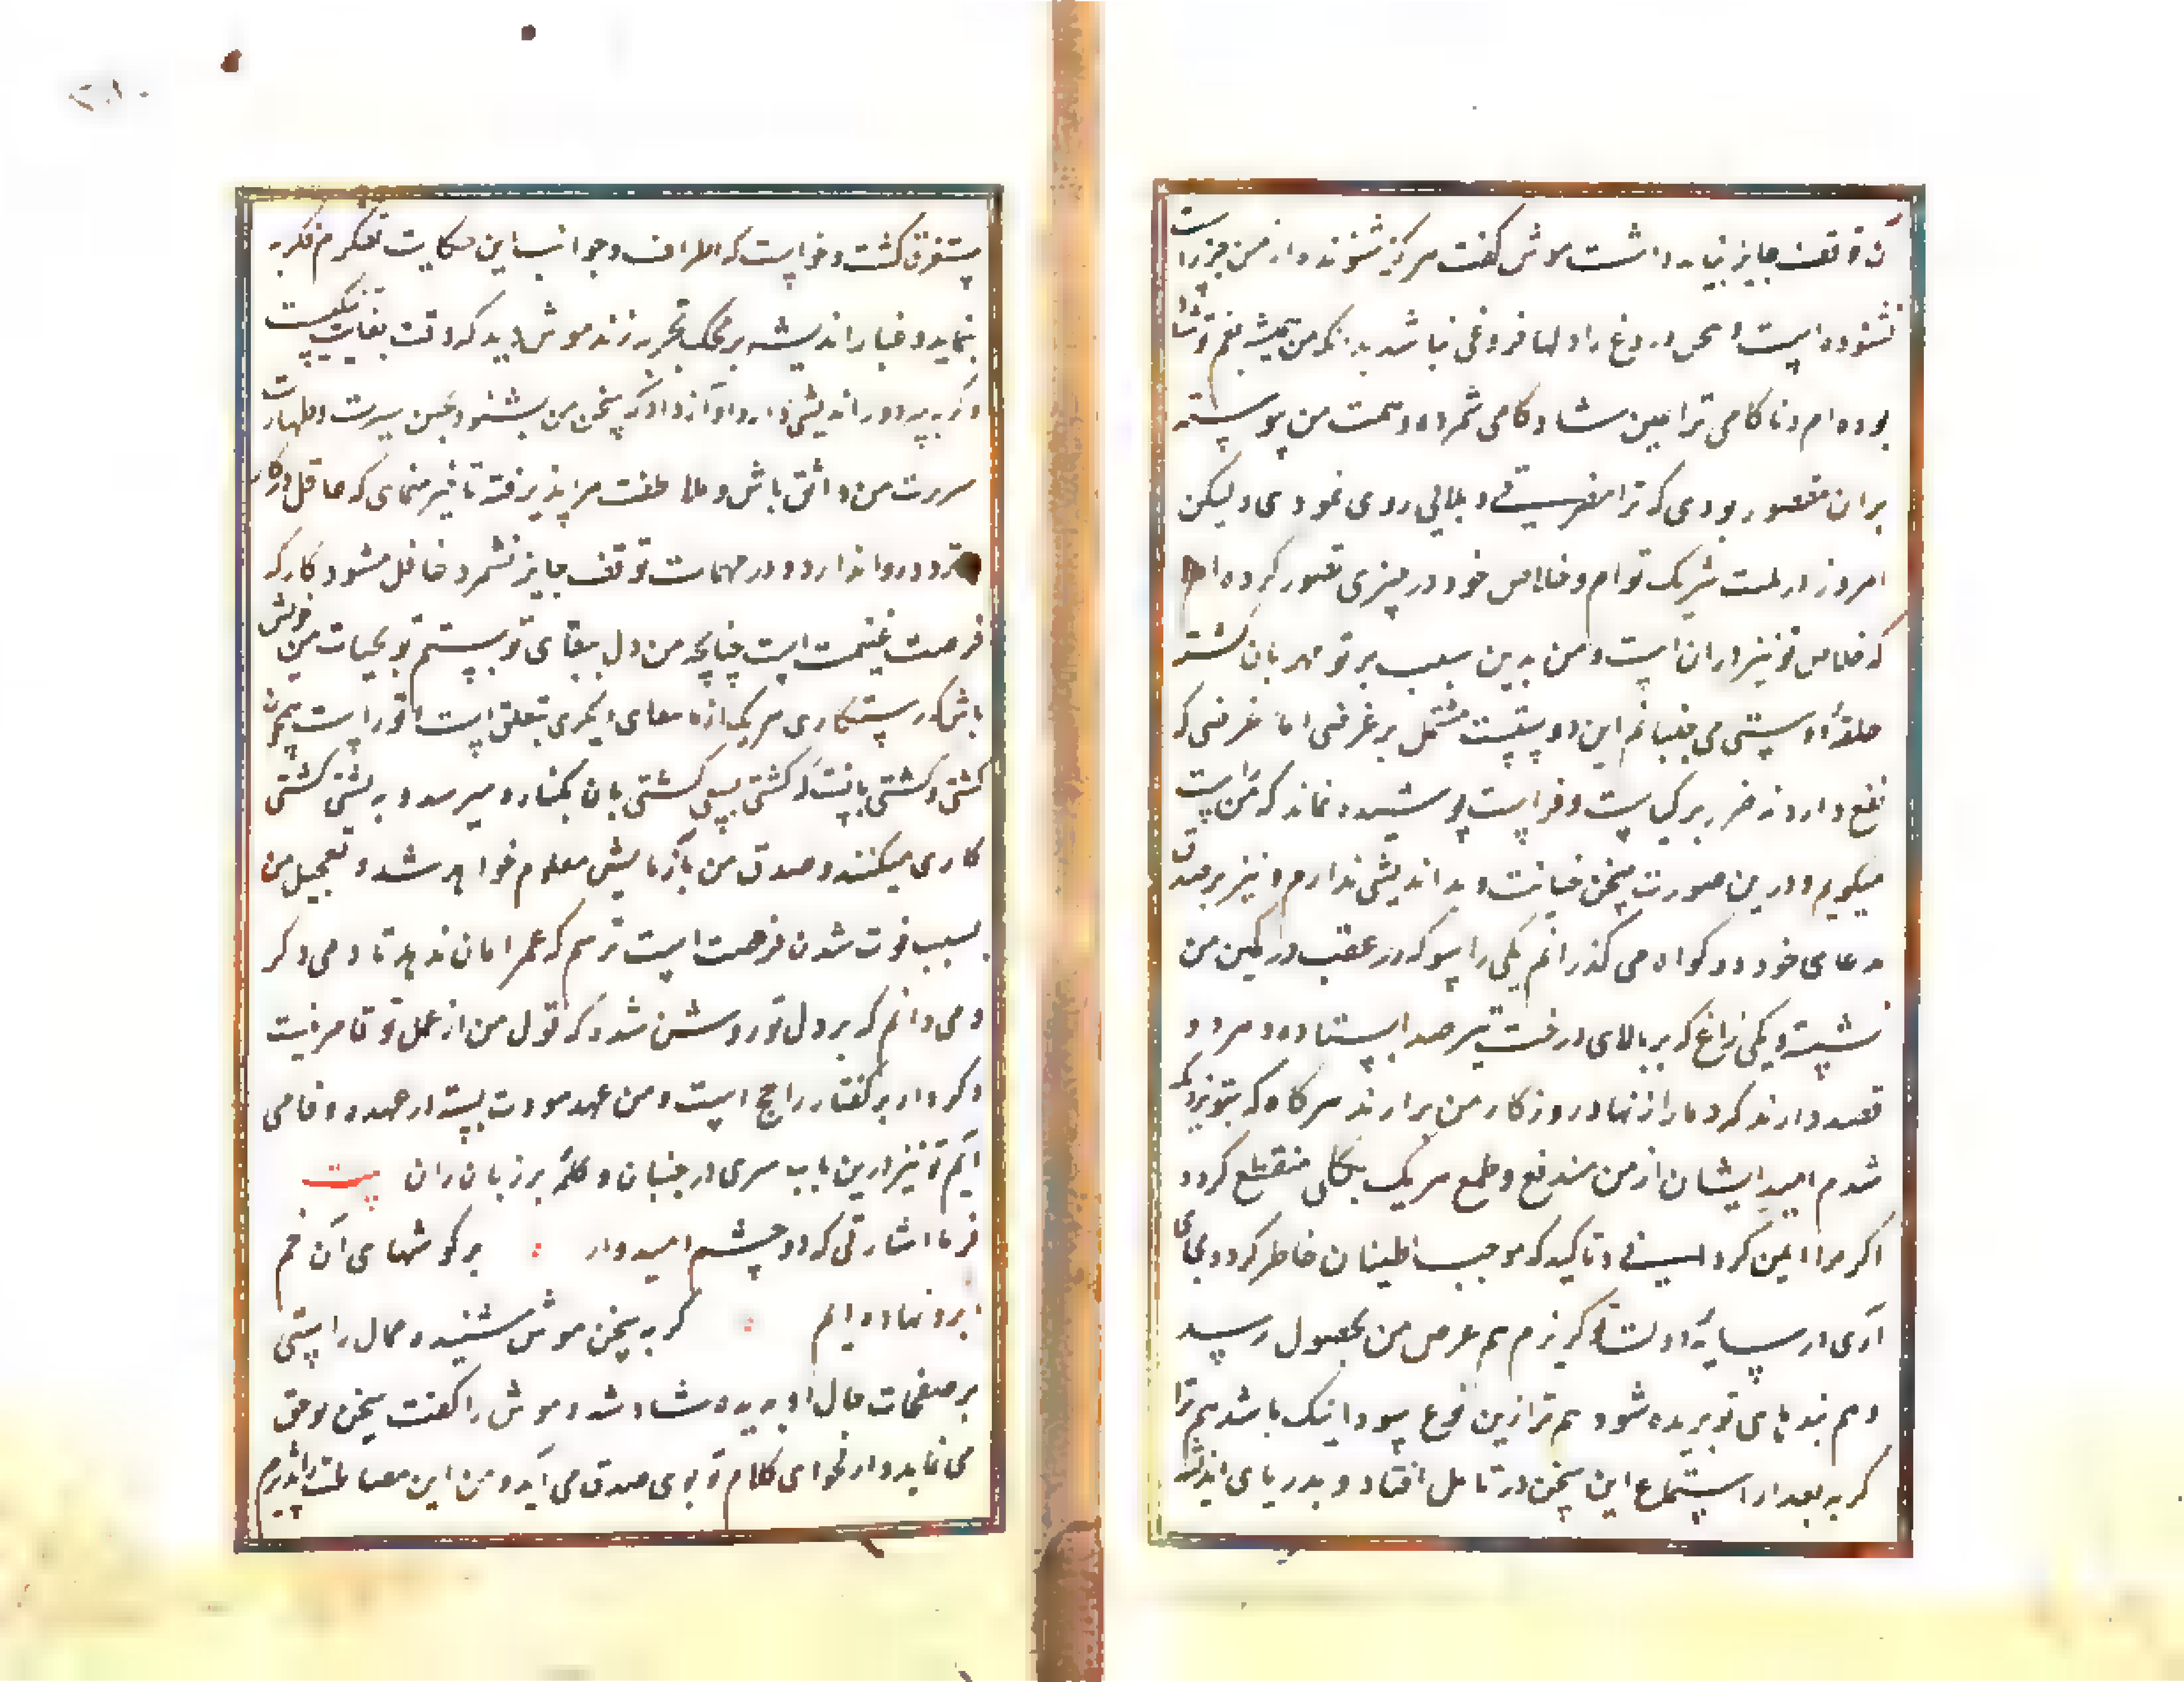 آن توقف جایز نباید داشت موش گفت هرگز شنونده از من جز راست
نشنوده است و سخن دروغ را در دلها فروغی نباشد بدانکه من همیشه بغم تو شاد
بوده ام و ناکامی ترا عین شادکامی شمرده و همت من پیوسته
بران مقصور بودی که ترا مضرتی و بلایی روی نمودی و لیکن
امروز در بلیت شریک توام و خلاص خود در چیزی تصور کرده ام
که خلاص تو نیز دران است و من بدین سبب بر تو مهربان گشته
حلقهٔ دوستی می جنبانم این دوستیست مشتمل بر غرضی اما غرضی که
نفع دارد نه ضرر بر کیاست و فراست پوشیده نماند که من راست
میگویم و درین صورت سخن خیانت و بداندیشی ندارم و نیز بر صدق
مدعای خود دو گواه می گذرانم یکی راسو که در عقب در کمین من
نشسته و یکی زاغ که بر بالای درخت مترصد ایستاده و هر دو
قصد دارند که دمار از نهاد روزگار من برارند هرگاه که بتو نزدیک
شدم امید ایشان از من مندفع و طمع هر یک بکلی منقطع گردد
اکر مرا ایمن کردانی و تاکیدی که موجب اطمینان خاطر گردد بجای
آری در سایهٔ دولت تو گریزم هم غرض من بحصول رسید
و هم بند پای تو بریده شود هم ترا ازین نوع سودا نیک باشد هم ترا
کربه بعد از استماع این سخن در تامل افتاد و بدریای اندیشه
مستغرق گشت و خواست که اطراف و جوانب این حکایت بقدم فکر به
نماید و عیار اندیشه بر محک تجربه زند موش دید که وقت بغایت تنکست
و گربه سر دوراندیشی دارد آواز داد که سخن من بشنو و بحسن سیرت و طهارت
سریرت من واثق باش و ملاطفت مرا پذیرفته تاخیر منمای که عاقل در کار
تردد روا ندارد و در مهمات توقف جایز نشمرد غافل مشو و کار کن که
فرصت غنیمت است چنانچه من دل ببقای تو بستم تو بحیات من خوش
باش که رستگاری هر یک از ما ببقای دیگری متعلق است و راست همچون
کشتی و کشتی بانست که کشتی بسعی کشتی بان بکناره میرسد و به پشتی کشتی
کاری میکنند و صدق من بآزمایش معلوم خواهد شد و تعجیل من
بسبب فوت شدن فرصت است ترسم که عمر امان ندهد تا دمی دگر
و می دانم که بر دل تو روشن شد که قول من از عمل تو قاصر نیست
و کردار بر گفتار راجح است و من عهد مودت بستم از عهده وفا می
آیم تو نیز درین باب سری در جنبان و کلمهٔ بر زبان ران بیت
فرما اشارتی که دو چشم امیدوار : بر گوشهای آن خم
ابرو نهاده ایم : گربه سخن موش شنید و جمال راستی
بر صفحات حال او بدید شاد شد و موش را گفت سخن تو حق
می نماید و از فحوای کلام تو بوی صدق می آید و من این مصالحت را پذیرم